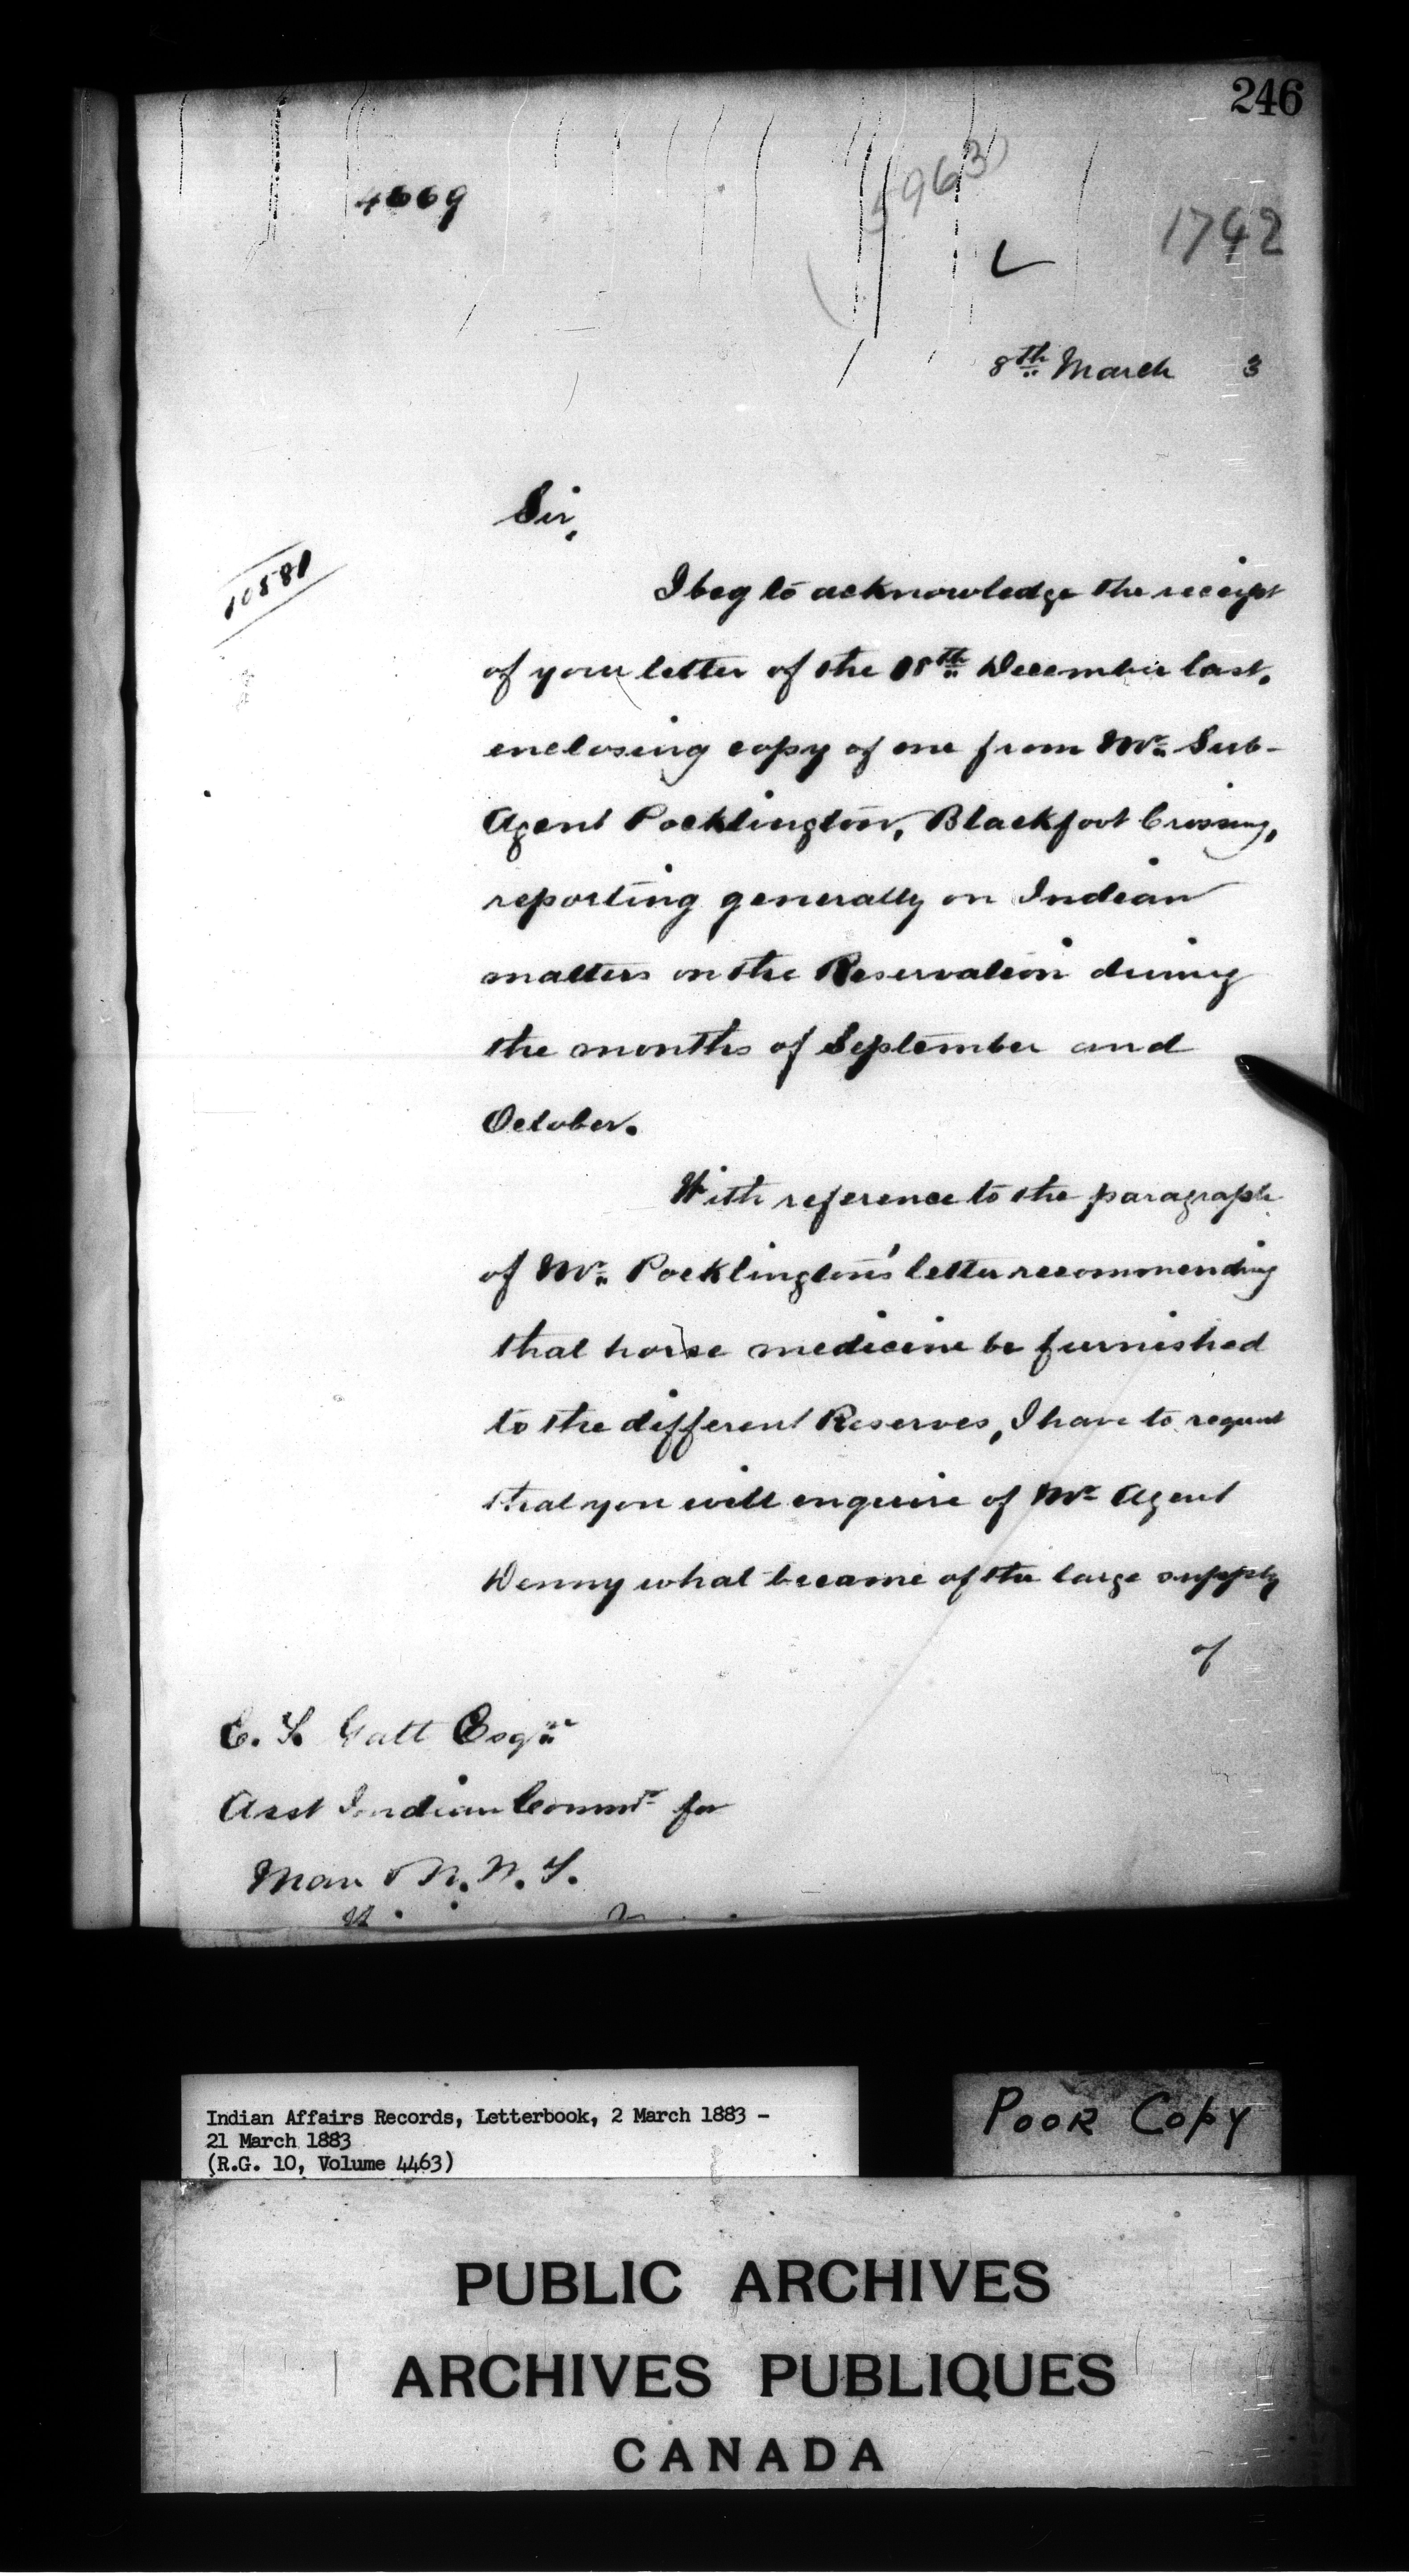 246
4669
5963
1742
L
8th March 3
Sir,
10581
I beg to acknowledge the receipt
of your letter of the 18th December last,
enclosing copy of one from Mr. Sub-
Agent Pocklington, Blackfoot Crossing,
reporting generally on Indian
matters on the Reservation during
the months of September and
October.
With reference to the paragraph
of Mr. Pocklington's letter recommending
that horse medicine be furnished
to the different Reserves, I have to request
that you will enquire of Mr Agent
Denny what became of the large supply
of
E. T. Galt Esqre
Asst Indian Commr for
Man & N. W. T.
Indian Affairs Records, Letterbook, 2 March 1883 -
21 March 1883
(R.G. 10, Volume 4463)
POOR COPY
PUBLIC ARCHIVES
ARCHIVES PUBLIQUES
CANADA